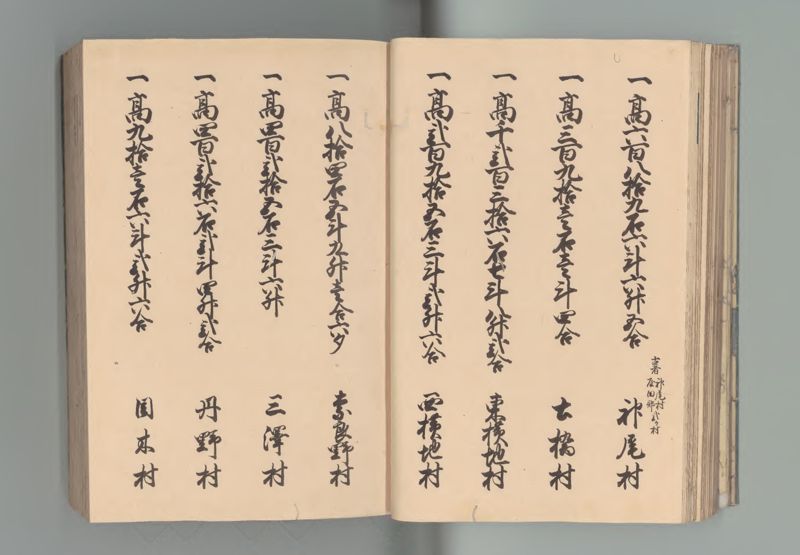 一高六百八拾九石六斗六升五合
古者神尾村
金田郷
神尾村
一高三百九拾壱石壱斗四合
土橋村
一高千弐百三拾六石七斗八升弐合
東横地村
一高弐百九拾五石三斗弐升六合
西横地村
一高八拾四石五斗九升壱合六夕
奈良野村
一高四百弐拾五石三斗六升
三澤村
一高四百弐拾六石弐斗四升弐合
丹野村
一高九拾壱石六斗弐升六合
目木村